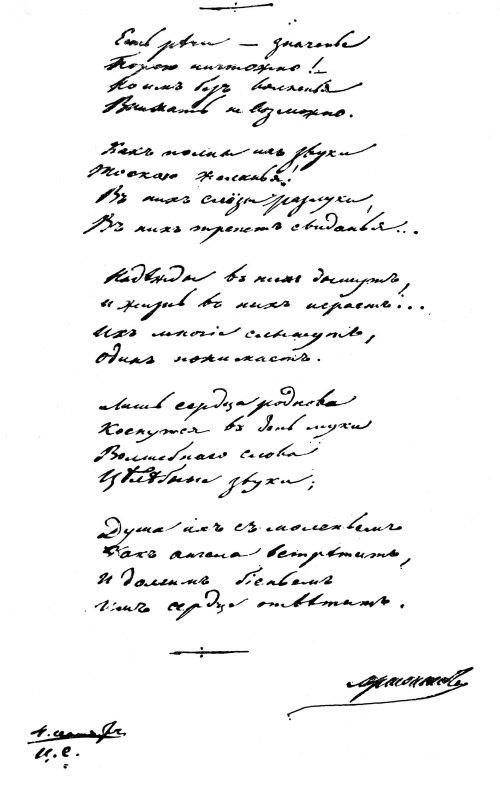 Есть рѣчи — значенье
Порою ничтожно!
Но имъ безъ волненья
Внимать невозможно.
Какъ полны ихъ звуки
Тоскою желанья!
Въ нихъ слёзы разлуки,
Въ нихъ трепетъ свиданья...
Надежды въ нихъ дышутъ,
И жизнь въ нихъ играетъ...
Ихъ многіе слышутъ,
Одинъ понимаетъ.
Лишь сердца роднова
Коснутся въ день муки
Волшебнаго слова
Цѣлебные звуки;
Душа ихъ съ моленьемъ
Какъ ангела встрѣтитъ,
И долгимъ біеньемъ
Имъ сердце отвѣтитъ.
Лермонтовъ
4. сент
Ц. С.